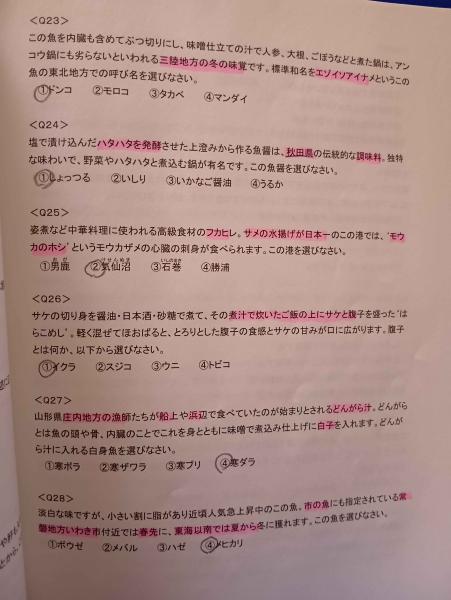 <Q23>
この魚を内臓も含めてぶつ切りにし、味噌仕立ての汁で人参、大根、ごぼうなどと煮た鍋は、アン
コウ鍋にも劣らないといわれる三陸地方の冬の味覚です。標準和名をエゾイソアイナメというこの
魚の東北地方での呼び名を選びなさい。
①ドンコ ②モロコ ③タカベ ④マンダイ
<Q24>
塩で漬け込んだハタハタを発酵させた上澄みから作る魚醤は、秋田県の伝統的な調味料。独特
な味わいで、野菜やハタハタと煮込む鍋が有名です。この魚醤を選びなさい。
①しょっつる ②いしり ③いかなご醤油 ④うるか
<Q25>
姿煮など中華料理に使われる高級食材のフカヒレ。サメの水揚げが日本一のこの港では、‘モウ
カのホシ’というモウカザメの心臓の刺身が食べられます。この港を選びなさい。
①男鹿 ②気仙沼 ③石巻 ④勝浦
<Q26>
サケの切り身を醤油・日本酒・砂糖で煮て、その煮汁で炊いたご飯の上にサケと腹子を盛った‘は
らこめし’。軽く混ぜてほおばると、とろりとした腹子の食感とサケの甘みが口に広がります。腹子
とは何か、以下から選びなさい。
①イクラ ②スジコ ③ウニ ④トビコ
<Q27>
山形県庄内地方の漁師たちが船上や浜辺で食べていたのが始まりとされるどんがら汁。どんがら
とは魚の頭や骨、内臓のことでこれを身とともに味噌で煮込み仕上げに白子を入れます。どんが
ら汁に入れる白身魚を選びなさい。
①寒ボラ ②寒ザワラ ③寒ブリ ④寒ダラ
<Q28>
淡白な味ですが、小さい割に脂があり近頃人気急上昇中のこの魚。市の魚にも指定されている常
磐地方いわき市付近では春先に、東海以南では夏から冬に獲れます。この魚を選びなさい。
①ボウゼ ②メバル ③ハゼ ④メヒカリ